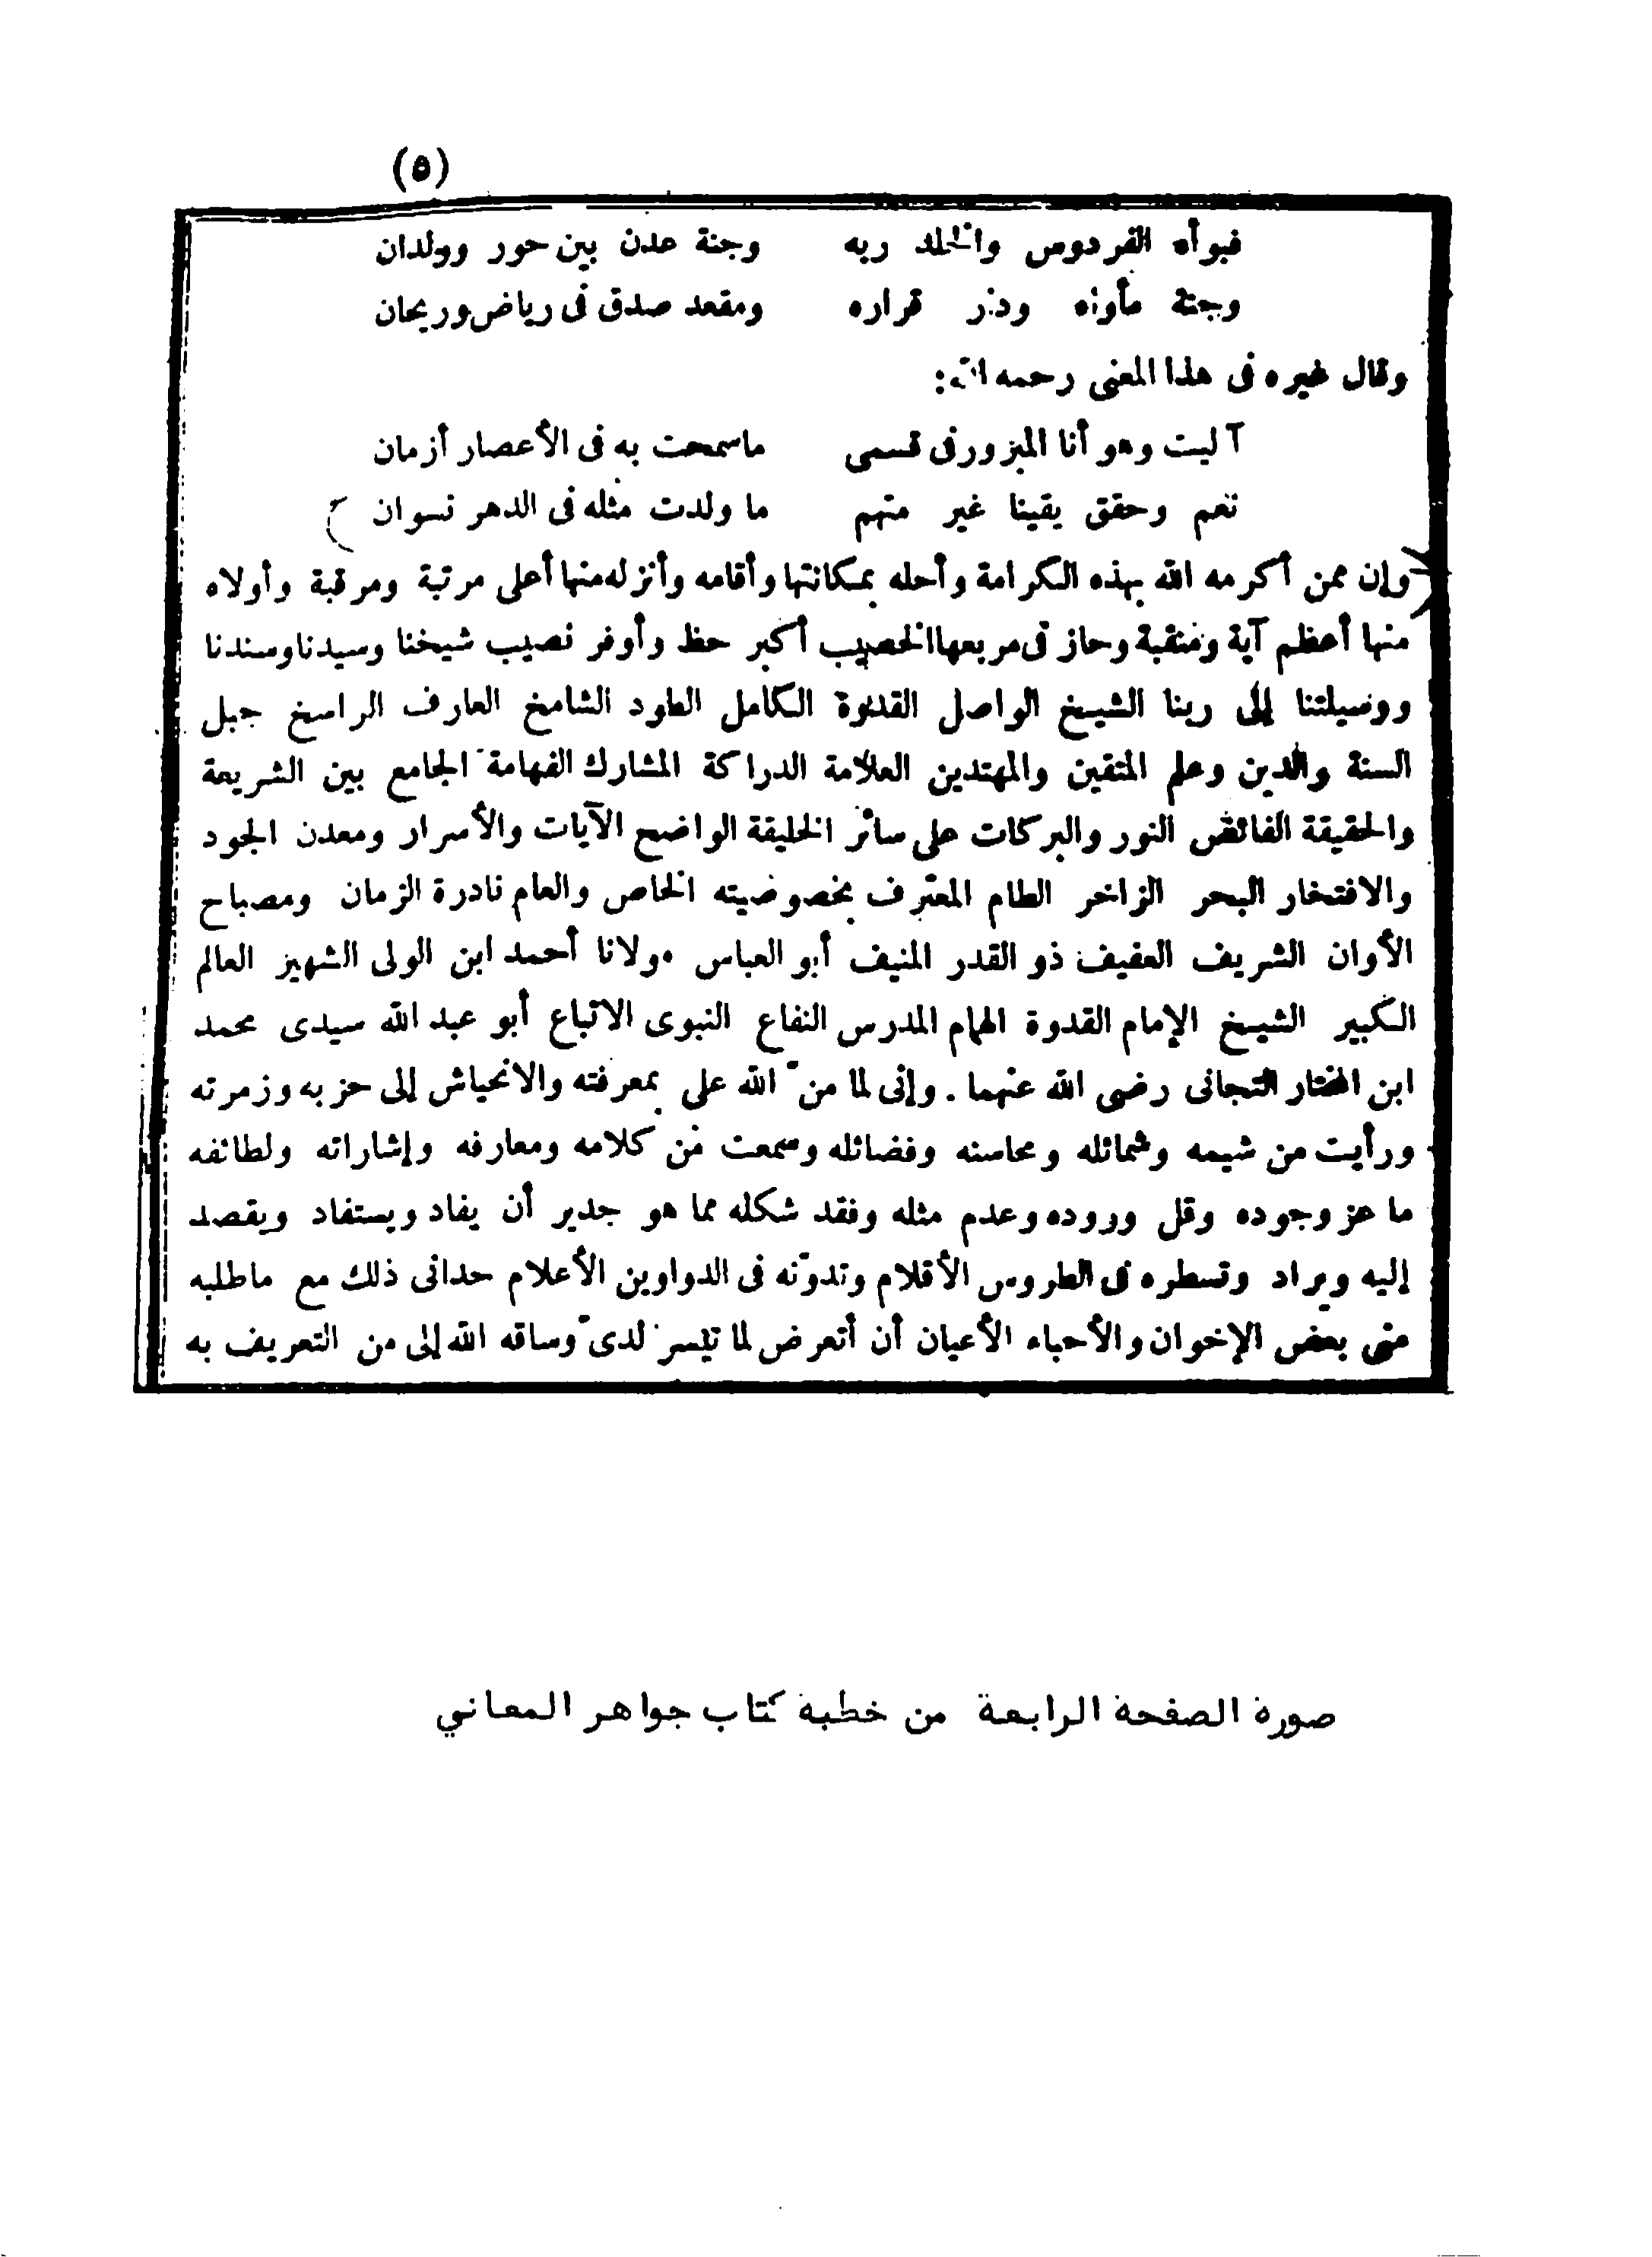 (٥)
فبوأه الفردوس والخلد ربه وجنة عدن بين حور وولدان
وجنة مأواه ودار قراره ومقعد صدق فى رياض وريحان
وقال غيره فى هذا المعنى رحمه الله:
آليت وهو أنا المبرور فى قسمى ماسمحت به فى الأعصار أزمان
نعم وحقق يقينا غير متهم ما ولدت مثله فى الدهر نسوان
وإن ممن أكرمه الله بهذه الكرامة وأحله بمكانتها وأقامه وأنزله منها أعلى مرتبة ومرقبة وأولاه
منها أعظم آية ومنقبة وحاز فى مربعها الخصيب أكبر حظ وأوفر نصيب شيخنا وسيدنا وسندنا
ووسيلتنا إلى ربنا الشيخ الواصل القدوة الكامل الطود الشامخ العارف الراسخ جبل
السنة والدين وعلم المتقين والمهتدين العلامة الدراكة المشارك الفهامة الجامع بين الشريعة
والحقيقة الفائض النور والبركات على سائر الخليقة الواضح الآيات والأسرار ومعدن الجود
والافتخار البحر الزاخر الطام المعترف بخصوصيته الخاص والعام نادرة الزمان ومصباح
الأوان الشريف العفيف ذو القدر المنيف أبو العباس مولانا أحمد ابن الولى الشهير العالم
الكبير الشيخ الإمام القدوة الهمام المدرس النفاع النبوى الاتباع أبو عبد الله سيدى محمد
ابن المختار التجانى رضى الله عنهما. وإنى لما منّ الله على بمعرفته والانحياش إلى حزبه وزمرته
ورأيت من شيمه وشمائله ومحاسنه وفضائله وسمعت من كلامه ومعارفه وإشاراته ولطائفه
ما عز وجوده وقل وروده وعدم مثله وفقد شكله مما هو جدير أن يفاد ويستفاد ويقصد
إليه ويراد وتسطره فى الطروس الأقلام وتدوّنه فى الدواوين الأعلام حدانى ذلك مع ماطلبه
منى بعض الإخوان والأحباء الأعيان أن أتعرض لما تيسر لدىّ وساقه الله إلى من التعريف به
صورة الصفحة الرابعة من خطبة كتاب جواهر المعاني